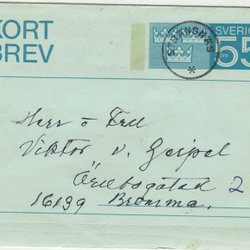 KORT
BREV
SVERIGE
55
STRÄNGNÄS
Herr o Fru
Viktor v. Geipel
2
16139 Bromma.